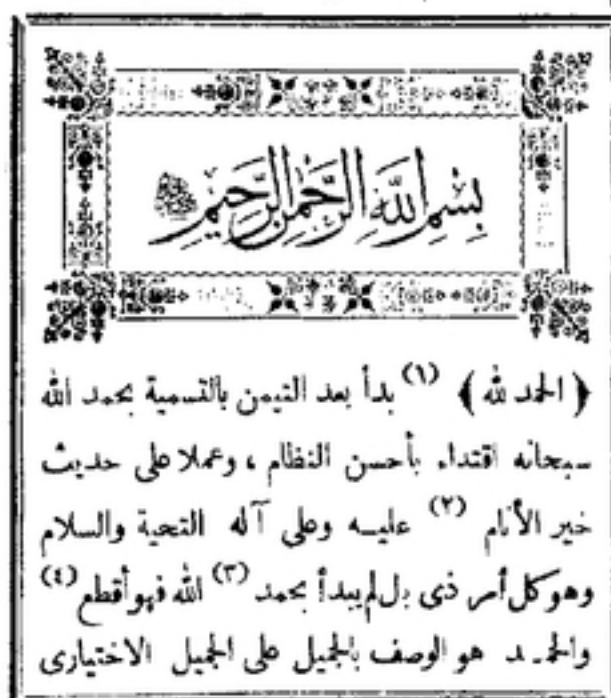 بِسْمِ اللَّهِ الرَّحْمَنِ الرَّحِيمِ
﴿ الحمد لله ﴾ (١) بدأ بعد التيمن بالتسمية بحمد الله
سبحانه اقتداء بأحسن النظام ، وعملا على حديث
خير الأنام (٢) عليه وعلى آله التحية والسلام
وهو كل أمر ذى بال لم يبدأ بحمد (٣) الله فهو أقطع (٤)
والحمد هو الوصف بالجميل على الجميل الاختيارى